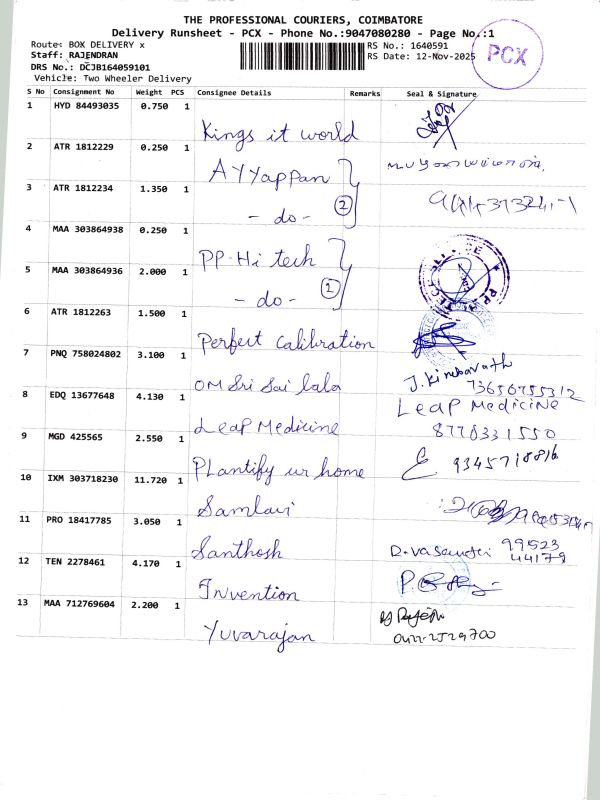 THE PROFESSIONAL COURIERS, COIMBATORE
Delivery Runsheet - PCX - Phone No.:9047080280 - Page No.:1
Route: BOX DELIVERY x
RS No.: 1640591
Staff: RAJENDRAN
RS Date: 12-Nov-2025
PCX
DRS No.: DCJB164059101
Vehicle: Two Wheeler Delivery
S No Consignment No Weight PCS Consignee Details Remarks Seal & Signature
1 HYD 84493035 0.750 1
Kings it world
2 ATR 1812229 0.250 1
AYYappan
3 ATR 1812234 1.350 1
- do - 2
4 MAA 303864938 0.250 1
PP-Hi tech
5 MAA 303864936 2.000 1
- do - 2
6 ATR 1812263 1.500 1
Perfect Calibration
7 PNQ 758024802 3.100 1
OM Sri Sai lala J. Kimbarath
8 EDQ 13677648 4.130 1
Leap Medicine Leap Medicine
8770331550
9 MGD 425565 2.550 1
Plantify ur home
10 IXM 303718230 11.720 1
Samlavi
11 PRO 18417785 3.050 1
Santhosh 99523
44179
12 TEN 2278461 4.170 1
Invention
13 MAA 712769604 2.200 1
Yuvarajan 0422-2529700